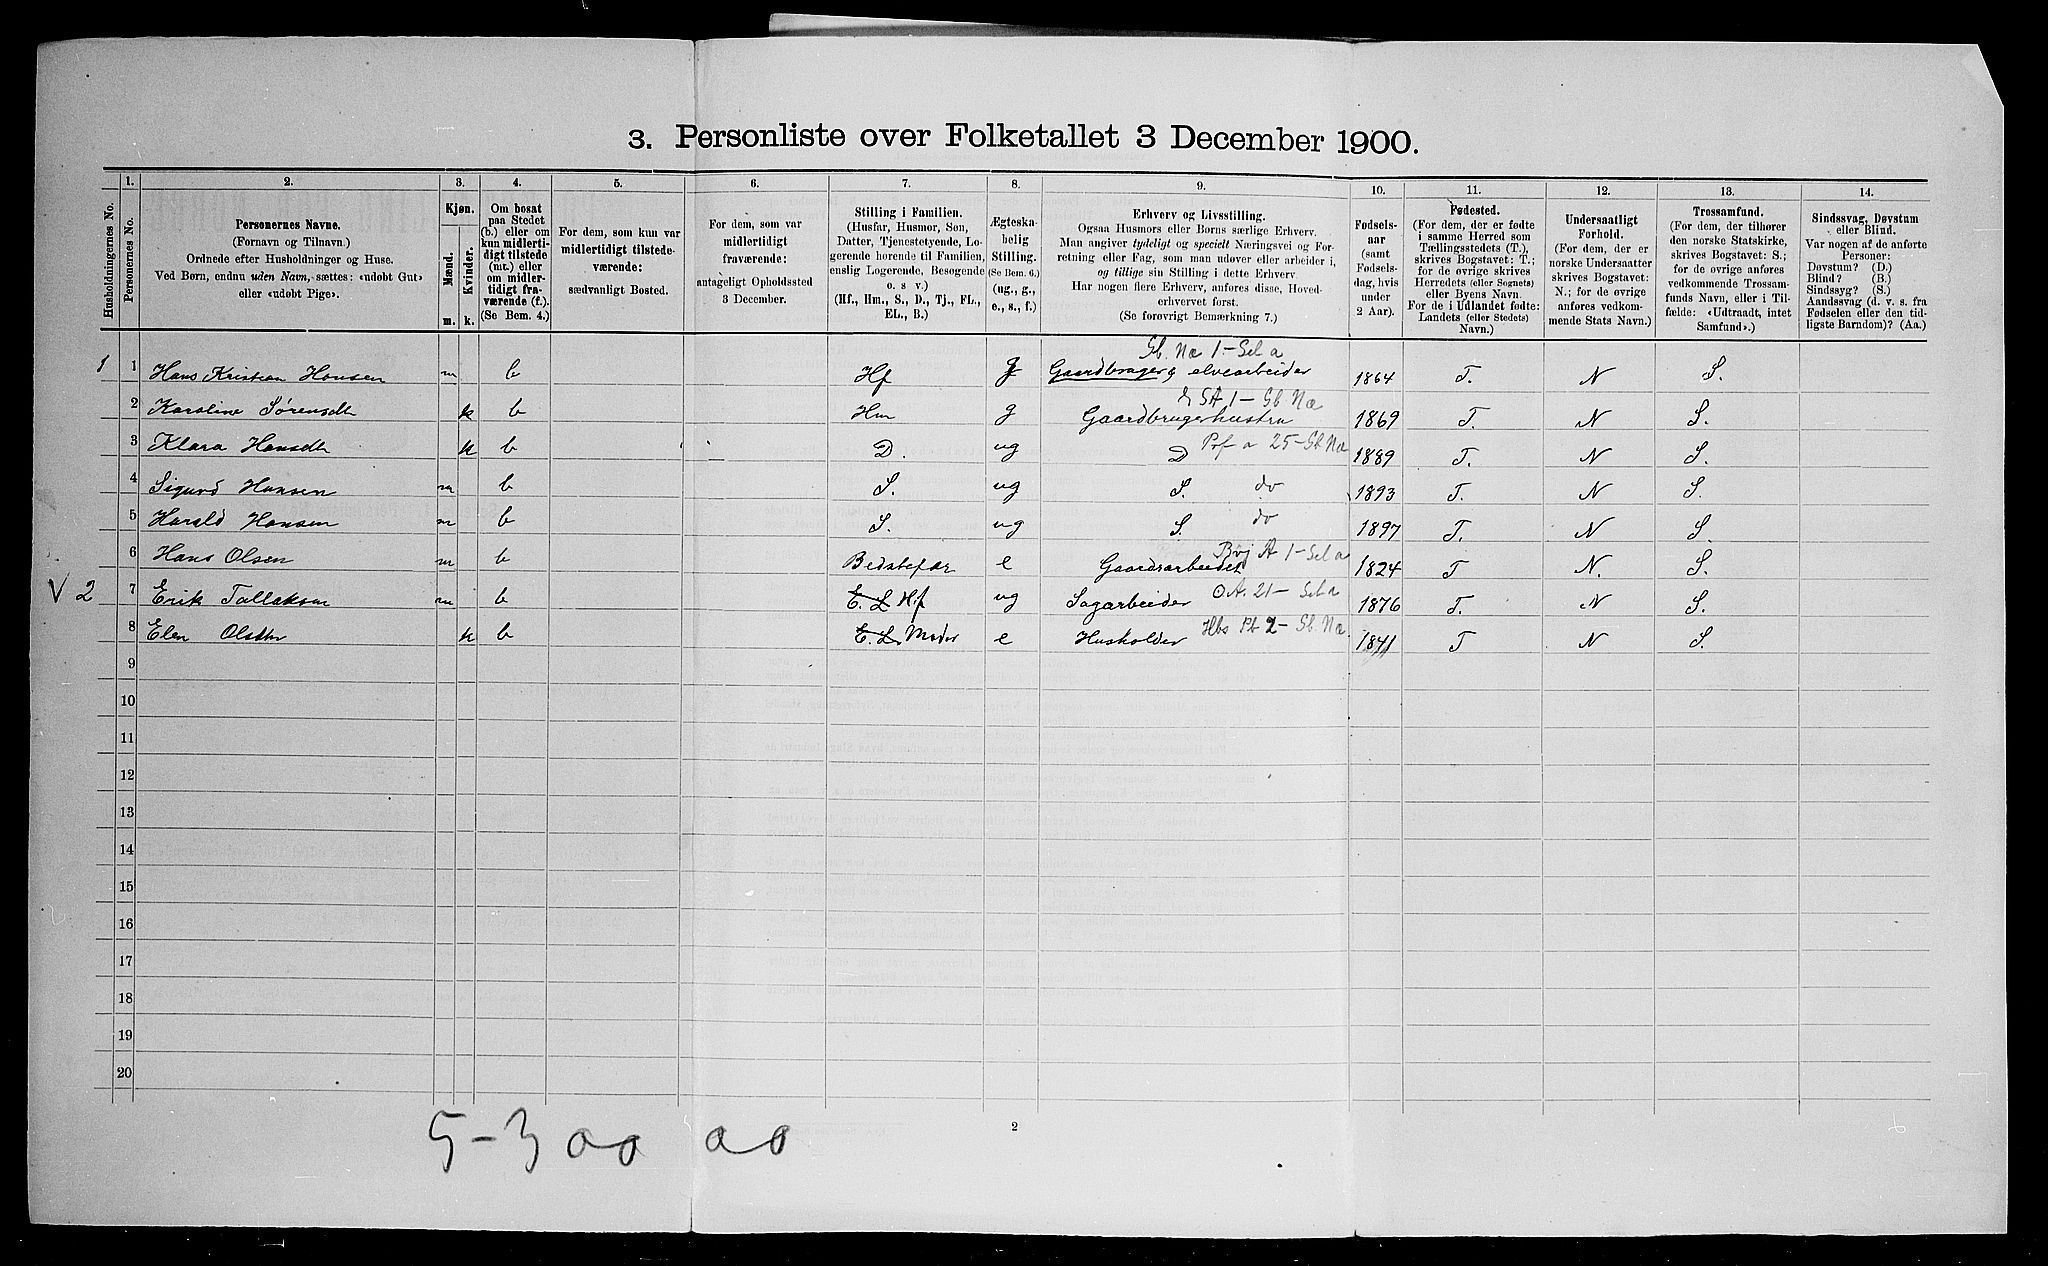 3. Personliste over Folketallet 3 December 1900.
1. 2. 3. 4. 5. 6. 7. 8. 9. 10. 11. 12. 13. 14.
Husholdningernes No.
Personernes No.
Personernes Navne.
(Fornavn og Tilnavn.)
Ordnede efter Husholdninger og Huse.
Ved Børn, endnu uden Navn, sættes: «udøbt Gut»
eller «udøbt Pige».
Kjøn.
Mænd.
Kvinder.
m. k.
Om bosat
paa Stedet
(b.) eller om
kun midlerti-
digt tilstede
(mt.) eller
om midler-
tidigt fra-
værende (f.).
(Se Bem. 4.)
For dem, som kun var
midlertidigt tilstede-
værende:
sædvanligt Bosted.
For dem, som var
midlertidigt
fraværende:
antageligt Opholdssted
3 December.
Stilling i Familien.
(Husfar, Husmor, Søn,
Datter, Tjenestetyende, Lo-
gerende hørende til Familien,
enslig Logerende, Besøgende
o. s v.)
(Hf., Hm., S., D., Tj., FL.,
EL., B.)
Ægteska-
belig
Stilling.
(Se Bem. 6.)
(ug., g.,
e., s., f.)
Erhverv og Livsstilling.
Ogsaa Husmors eller Børns særlige Erhverv.
Man angiver tydeligt og specielt Næringsvei og For-
retning eller Fag, som man udøver eller arbeider i,
og tillige sin Stilling i dette Erhverv.
Har nogen flere Erhverv, anføres disse, Hoved-
erhvervet først.
(Se forøvrigt Bemærkning 7.)
Fødsels-
aar
(samt
Fødsels-
dag, hvis
under
2 Aar).
Fødested.
(For dem, der er fødte
i samme Herred som
Tællingsstedets (T.),
skrives Bogstavet: T.;
for de øvrige skrives
Herredets (eller Sognets)
eller Byens Navn.
For de i Udlandet fødte:
Landets (eller Stedets)
Navn.)
Undersaatligt
Forhold.
(For dem, der er
norske Undersaatter
skrives Bogstavet:
N.; for de øvrige
anføres vedkom-
mende Stats Navn.)
Trossamfund.
(For dem, der tilhører
den norske Statskirke,
skrives Bogstavet: S.;
for de øvrige anføres
vedkommende Trossam-
funds Navn, eller i Til-
fælde: «Udtraadt, intet
Samfund».)
Sindssvag, Døvstum
eller Blind.
Var nogen af de anførte
Personer:
Døvstum? (D.)
Blind? (B.)
Sindssyg? (S.)
Aandssvag (d. v. s. fra
Fødselen eller den tid-
ligste Barndom)? (Aa.)
Gb. Næ 1 – Sel a
1 1 Hans Kristian Hansen m b Hf g Gaardbruger & elvearbeider 1864 T. N S.
1 – Gb Næ
2 Karoline Sørensdtr k b Hm g Gaardbrugerhustru 1869 T. N S.
3 Klara Hansdtr k b D. ug D a 25 – Gb Næ 1889 T. N S.
4 Sigurd Hansen m b S. ug S. do 1893 T. N S.
5 Harald Hansen m b S. ug S. do 1897 T. N S.
6 Hans Olsen m b Bedstefar e Gaardsarbeider A 1 – Sel a 1824 T N. S.
V 2 7 Erik Tallaksen m b E. L Hf ug Sagarbeider OA. 21 – Sel a 1876 T. N S.
8 Elen Olsdtr k b E. L Moder e Husholder Hbs Pt 2 – Gb. Næ. 1841 T N S.
9
10
11
12
13
14
15
16
17
18
19
20
5 – 300 00
2
6